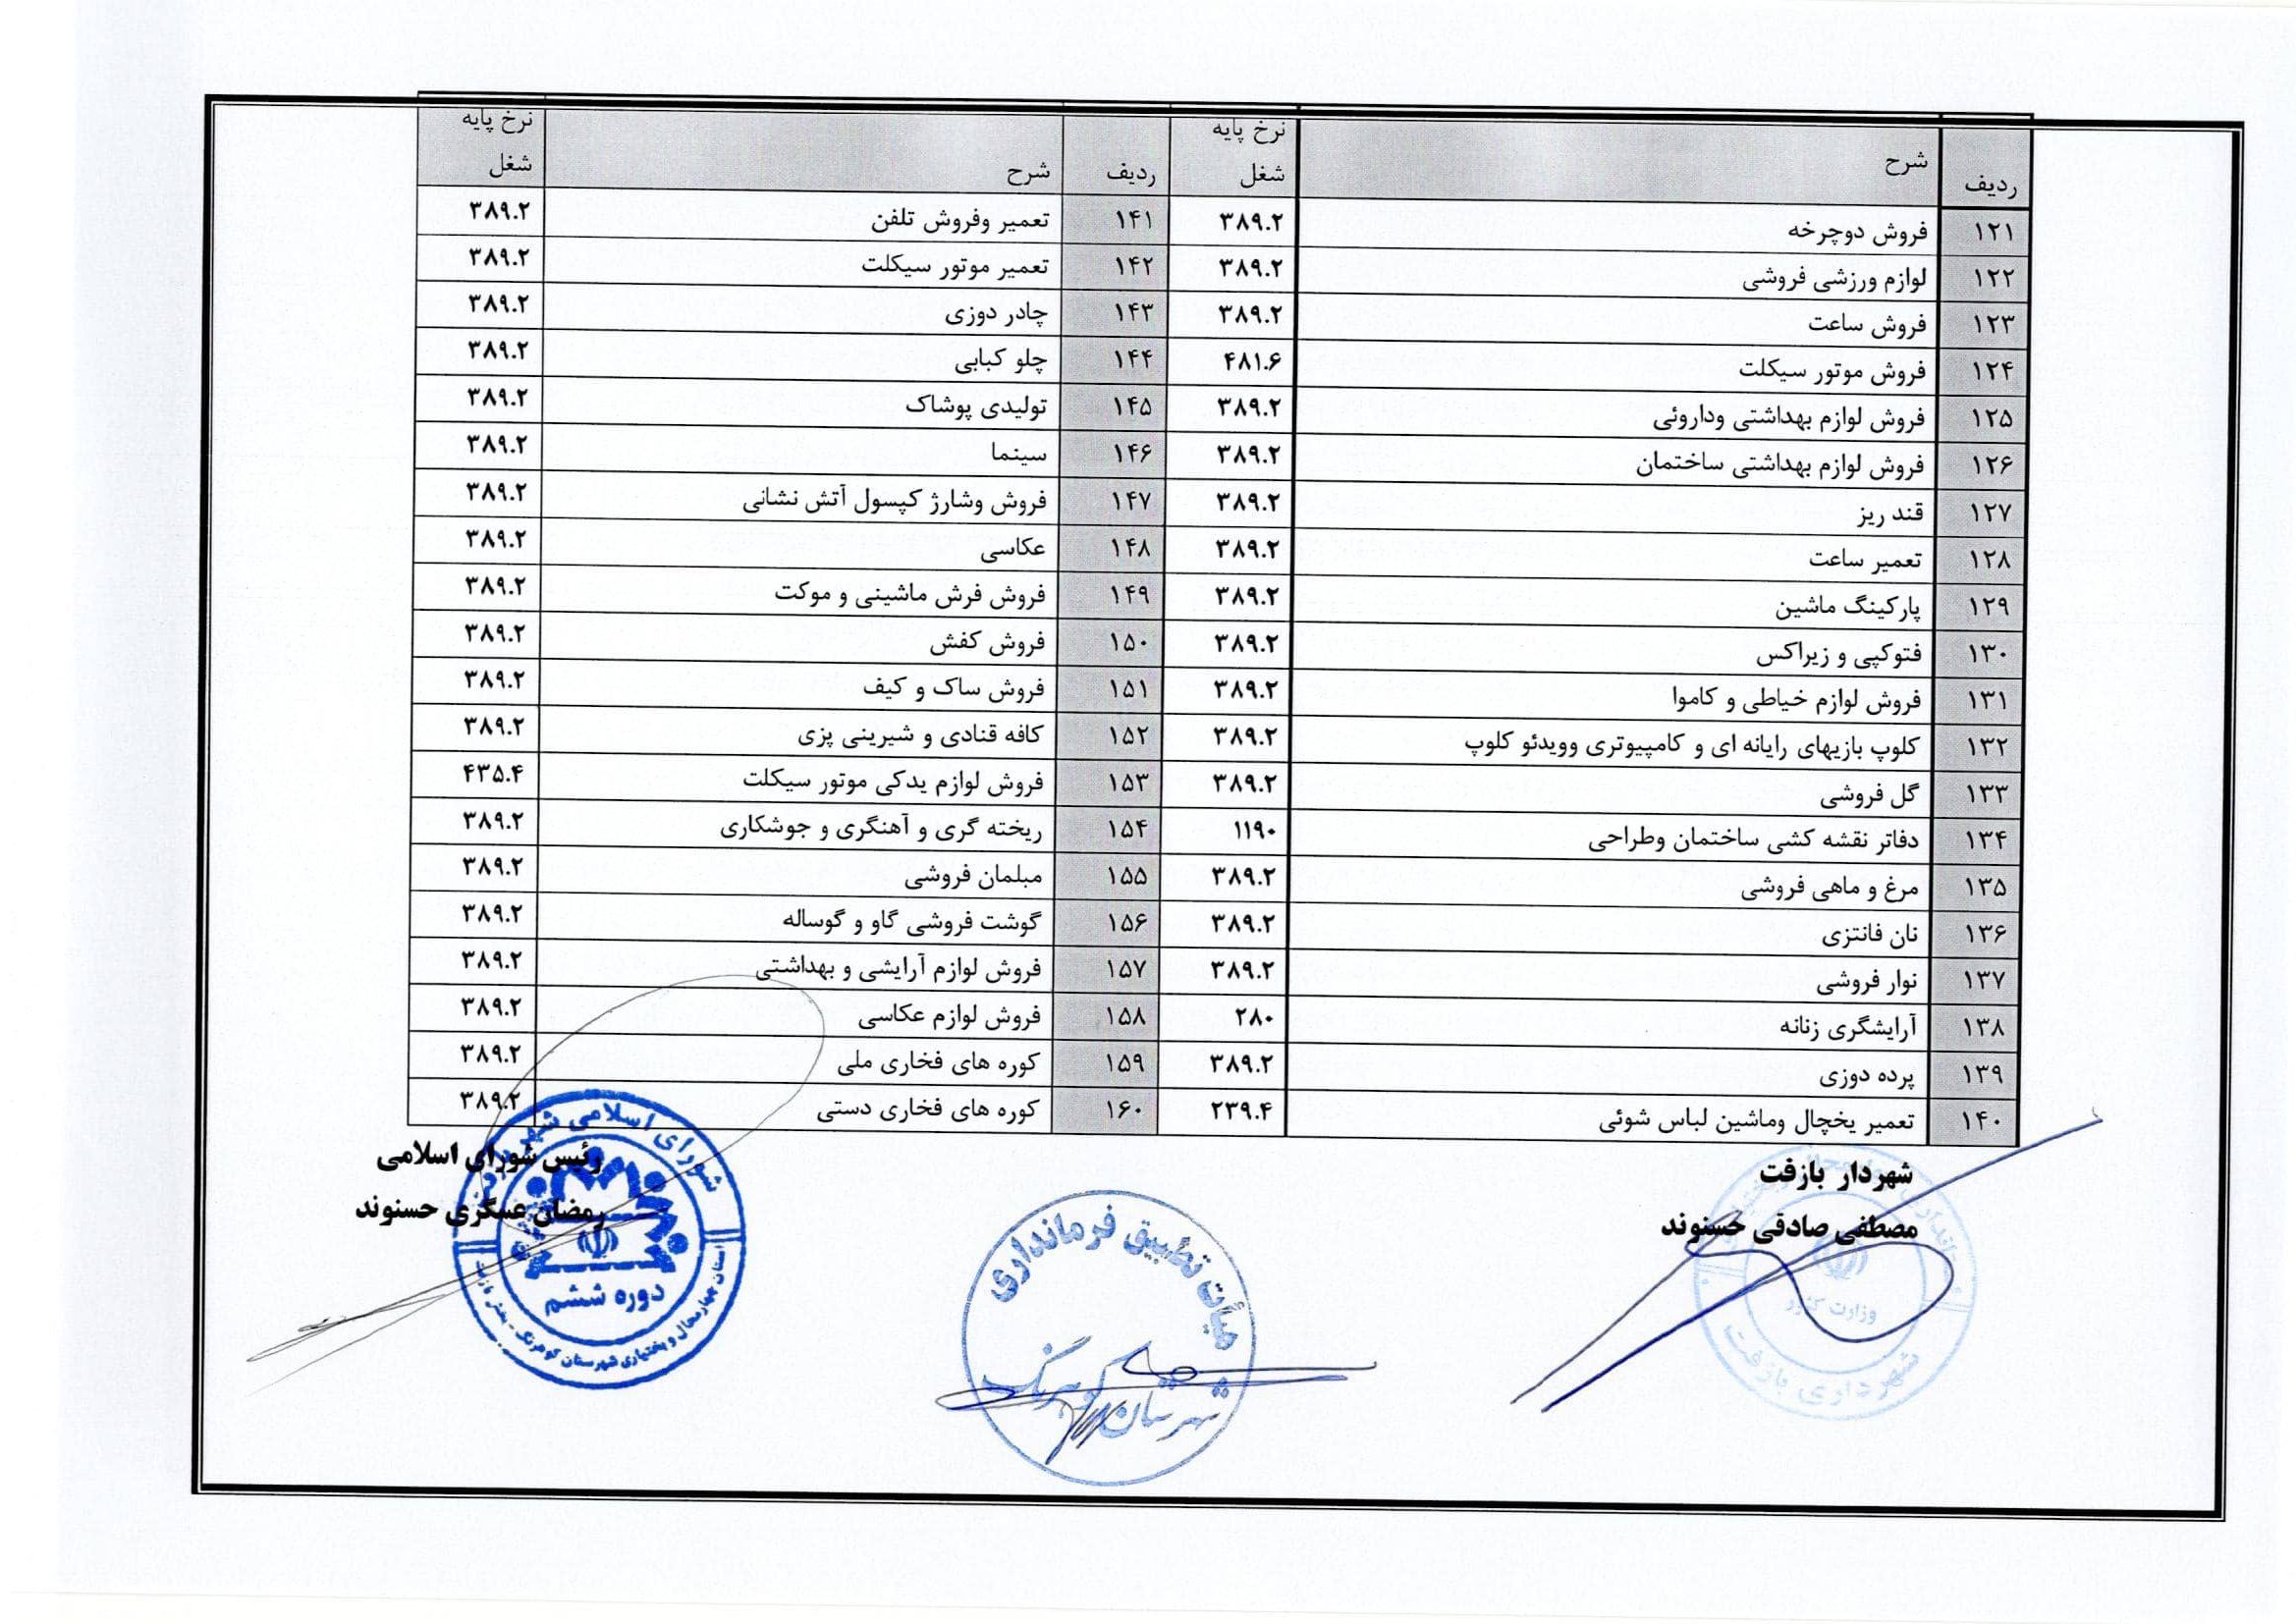 ردیف شرح نرخ پایه شغل ردیف شرح نرخ پایه شغل
۱۲۱ فروش دوچرخه ۳۸۹.۲ ۱۴۱ تعمیر وفروش تلفن ۳۸۹.۲
۱۲۲ لوازم ورزشی فروشی ۳۸۹.۲ ۱۴۲ تعمیر موتور سیکلت ۳۸۹.۲
۱۲۳ فروش ساعت ۳۸۹.۲ ۱۴۳ چادر دوزی ۳۸۹.۲
۱۲۴ فروش موتور سیکلت ۴۸۱.۶ ۱۴۴ چلو کبابی ۳۸۹.۲
۱۲۵ فروش لوازم بهداشتی وداروئی ۳۸۹.۲ ۱۴۵ تولیدی پوشاک ۳۸۹.۲
۱۲۶ فروش لوازم بهداشتی ساختمان ۳۸۹.۲ ۱۴۶ سینما ۳۸۹.۲
۱۲۷ قند ریز ۳۸۹.۲ ۱۴۷ فروش وشارژ کپسول آتش نشانی ۳۸۹.۲
۱۲۸ تعمیر ساعت ۳۸۹.۲ ۱۴۸ عکاسی ۳۸۹.۲
۱۲۹ پارکینگ ماشین ۳۸۹.۲ ۱۴۹ فروش فرش ماشینی و موکت ۳۸۹.۲
۱۳۰ فتوکپی و زیراکس ۳۸۹.۲ ۱۵۰ فروش کفش ۳۸۹.۲
۱۳۱ فروش لوازم خیاطی و کاموا ۳۸۹.۲ ۱۵۱ فروش ساک و کیف ۳۸۹.۲
۱۳۲ کلوپ بازیهای رایانه ای و کامپیوتری وویدئو کلوپ ۳۸۹.۲ ۱۵۲ کافه قنادی و شیرینی پزی ۳۸۹.۲
۱۳۳ گل فروشی ۳۸۹.۲ ۱۵۳ فروش لوازم یدکی موتور سیکلت ۴۳۵.۴
۱۳۴ دفاتر نقشه کشی ساختمان وطراحی ۱۱۹۰ ۱۵۴ ریخته گری و آهنگری و جوشکاری ۳۸۹.۲
۱۳۵ مرغ و ماهی فروشی ۳۸۹.۲ ۱۵۵ مبلمان فروشی ۳۸۹.۲
۱۳۶ نان فانتزی ۳۸۹.۲ ۱۵۶ گوشت فروشی گاو و گوساله ۳۸۹.۲
۱۳۷ نوار فروشی ۳۸۹.۲ ۱۵۷ فروش لوازم آرایشی و بهداشتی ۳۸۹.۲
۱۳۸ آرایشگری زنانه ۲۸۰ ۱۵۸ فروش لوازم عکاسی ۳۸۹.۲
۱۳۹ پرده دوزی ۳۸۹.۲ ۱۵۹ کوره های فخاری ملی ۳۸۹.۲
۱۴۰ تعمیر یخچال وماشین لباس شوئی ۲۳۹.۴ ۱۶۰ کوره های فخاری دستی ۳۸۹.۲
شهردار بازفت
مصطفی صادقی حسنوند
وزارت کشور
شهرداری بازفت
هیأت تطبیق فرمانداری
شهرستان کوهرنگ
رئیس شورای اسلامی
رمضان عسگری حسنوند
شورای اسلامی شهر
دوره ششم
استان چهارمحال و بختیاری شهرستان کوهرنگ - بخش بازفت